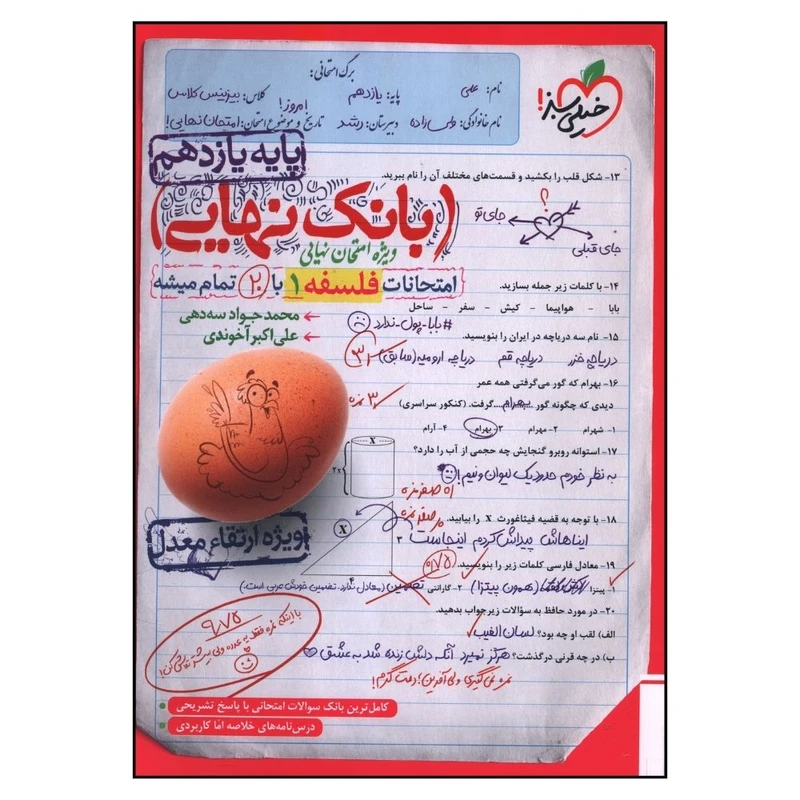 برگ امتحانی:
نام: علی
پایه: یازدهم
کلاس: بیزینس کلاس
نام خانوادگی:
دبیرستان: رشد
تاریخ و موضوع امتحان: امتحان نهایی!
امروز!
خیلی سبز!
پایه یازدهم
(بانک نهایی)
ویژه امتحان نهایی
امتحانات فلسفه ۱ با ۲۰ تمام میشه
محمدجواد سه‌دهی
علی‌اکبر آخوندی
۱۳- شکل قلب را بکشید و قسمت‌های مختلف آن را نام ببرید.
؟
جای تو
جای قبلی
۱۴- با کلمات زیر جمله بسازید.
بابا - هواپیما - کیش - سفر - ساحل
#بابا-پول-ندارد
۱۵- نام سه دریاچه در ایران را بنویسید.
دریاچه خزر دریاچه قم دریاچه ارومیه (سابق)
۱۶- بهرام که گور می‌گرفتی همه عمر
دیدی که چگونه گور بهرام گرفت. (کنکور سراسری)
۳ نمره
۱- شهرام ۲- مهرام ۳- بهرام ۴- آرام
۱۷- استوانه روبرو گنجایش چه حجمی از آب را دارد؟
X
۲x
به نظر خودم حدود یک لیوان و نیم!
اه صفر نمره
۱۸- با توجه به قضیه فیثاغورث X را بیابید.
صفر نمره
X
ایناهاش پیداش کردم اینجاست
۳
۴
ویژه ارتقاء معدل
۱۹- معادل فارسی کلمات زیر را بنویسید.
۰/۷۵
۱- پیتزا (همون پیتزا) ۲- گارانتی تضمین (معادل ندارد. تضمین خودش عربی است.)
۲۰- در مورد حافظ به سؤالات زیر جواب بدهید.
الف) لقب او چه بود؟ لسان الغیب
ب) در چه قرنی درگذشت؟ هرگز نمیرد آنکه دلش زنده شد به عشق
نمره نمی‌گیری ولی آفرین! دمت گرم!
۹/۷۵
با اینکه نمره فقط یه عدده ولی بیشتر تلاش کن!
کامل‌ترین بانک سوالات امتحانی با پاسخ تشریحی
درس‌نامه‌های خلاصه اما کاربردی